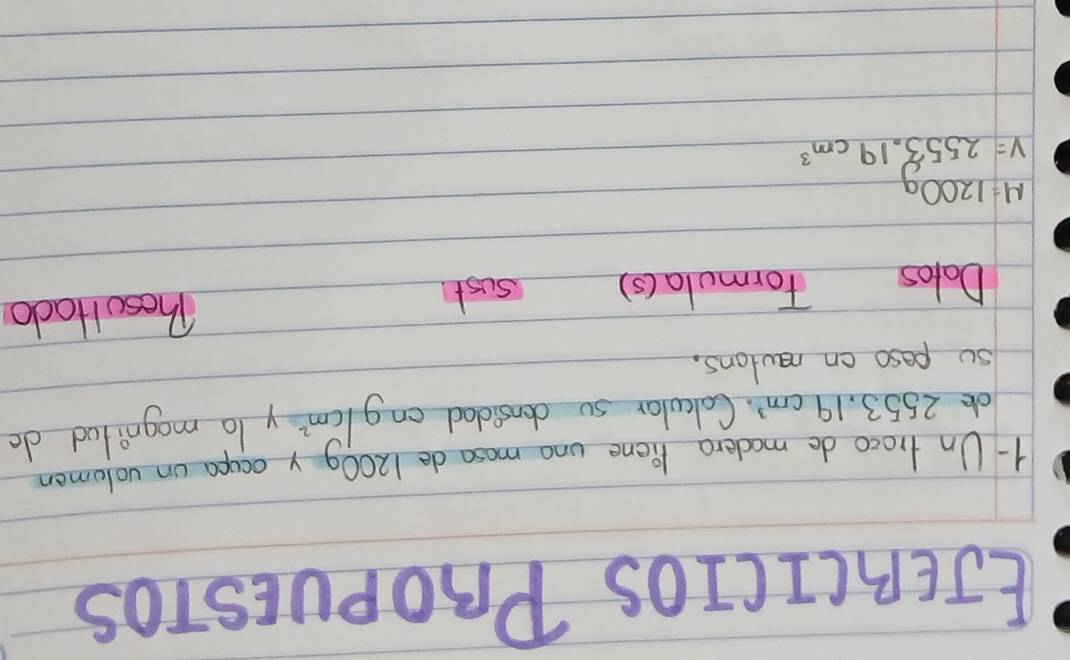 EJERCICIOS PROPUESTOS
1- Un trozo de madera tiene una masa de 1200g y ocupa un volumen
de 2553.19 cm³. Calcular su densidad en g/cm² y la magnitud de
su peso en newtons.
Datos Formula(s) Sust. Resultado
M=1200g
V= 2553.19 cm³